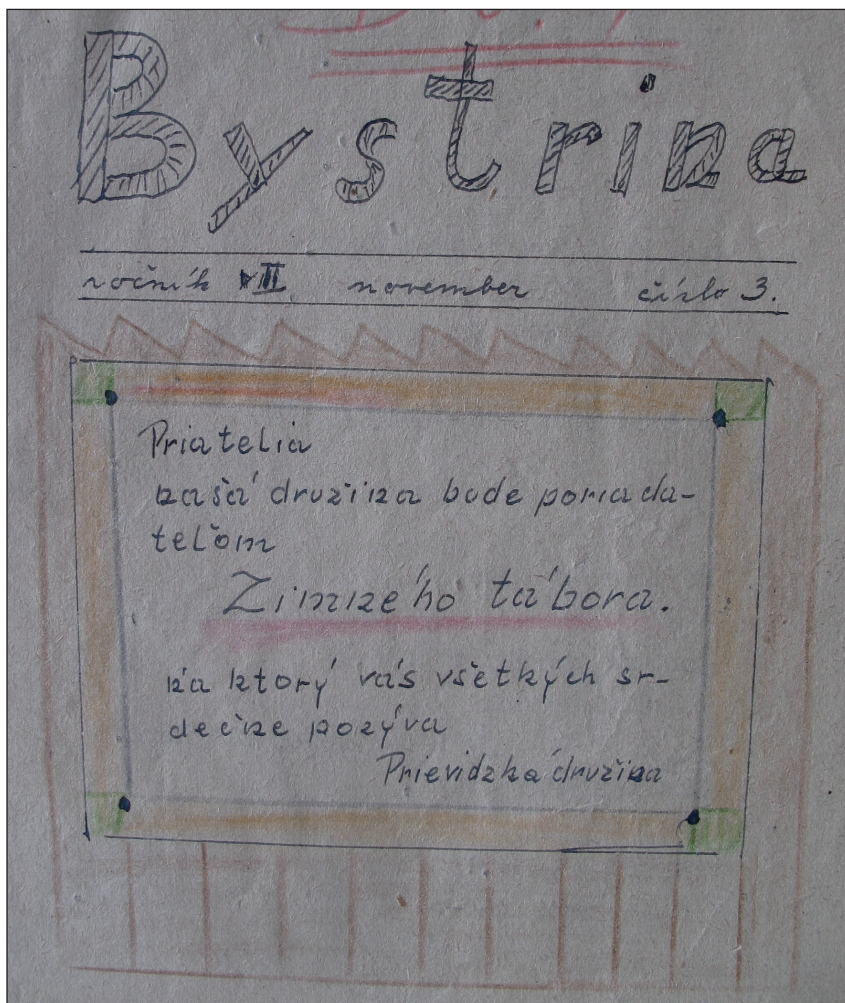 Bystrina
ročník VII. november číslo 3.
Priatelia
naša družina bude poriada-
teľom
Zimného tábora.
na ktorý vás všetkých sr-
dečne pozýva
Prievidzká družina